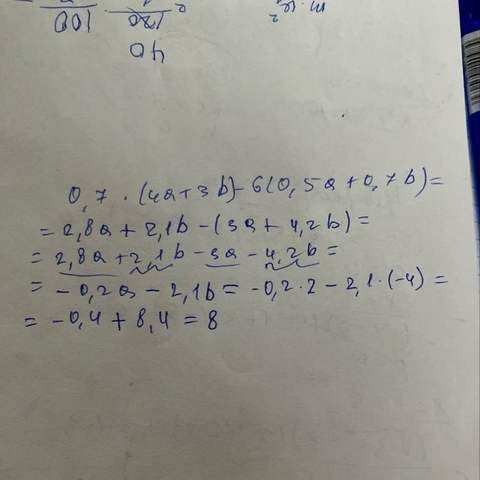 0,7 · (4a+3b)-6(0,5a+0,7b)=
= 2,8a + 2,1b - (3a + 4,2b) =
= 2,8a + 2,1b - 3a - 4,2b =
= -0,2a - 2,1b = -0,2·2 - 2,1·(-4) =
= -0,4 + 8,4 = 8